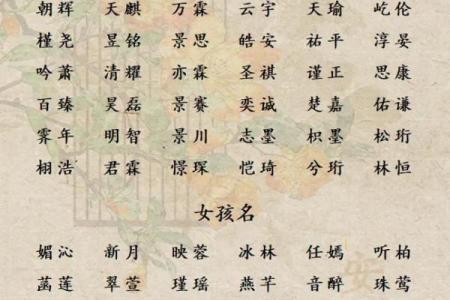 朝辉 天麒 万霖 云宇 天瑜 屹伦
槿尧 昱铭 景思 皓安 祐平 淳晏
吟萧 清耀 亦霖 圣祺 谨正 思康
百臻 昊磊 景赛 奕诚 楚嘉 佑谦
霁年 明智 景川 志墨 枳墨 松珩
栩浩 君霖 憬琛 恺琦 兮珩 林恒
女孩名
媚沁 新月 映蓉 冰林 任嫣 听柏
菡莲 翠萱 瑾瑶 燕芊 音醉 珠莺